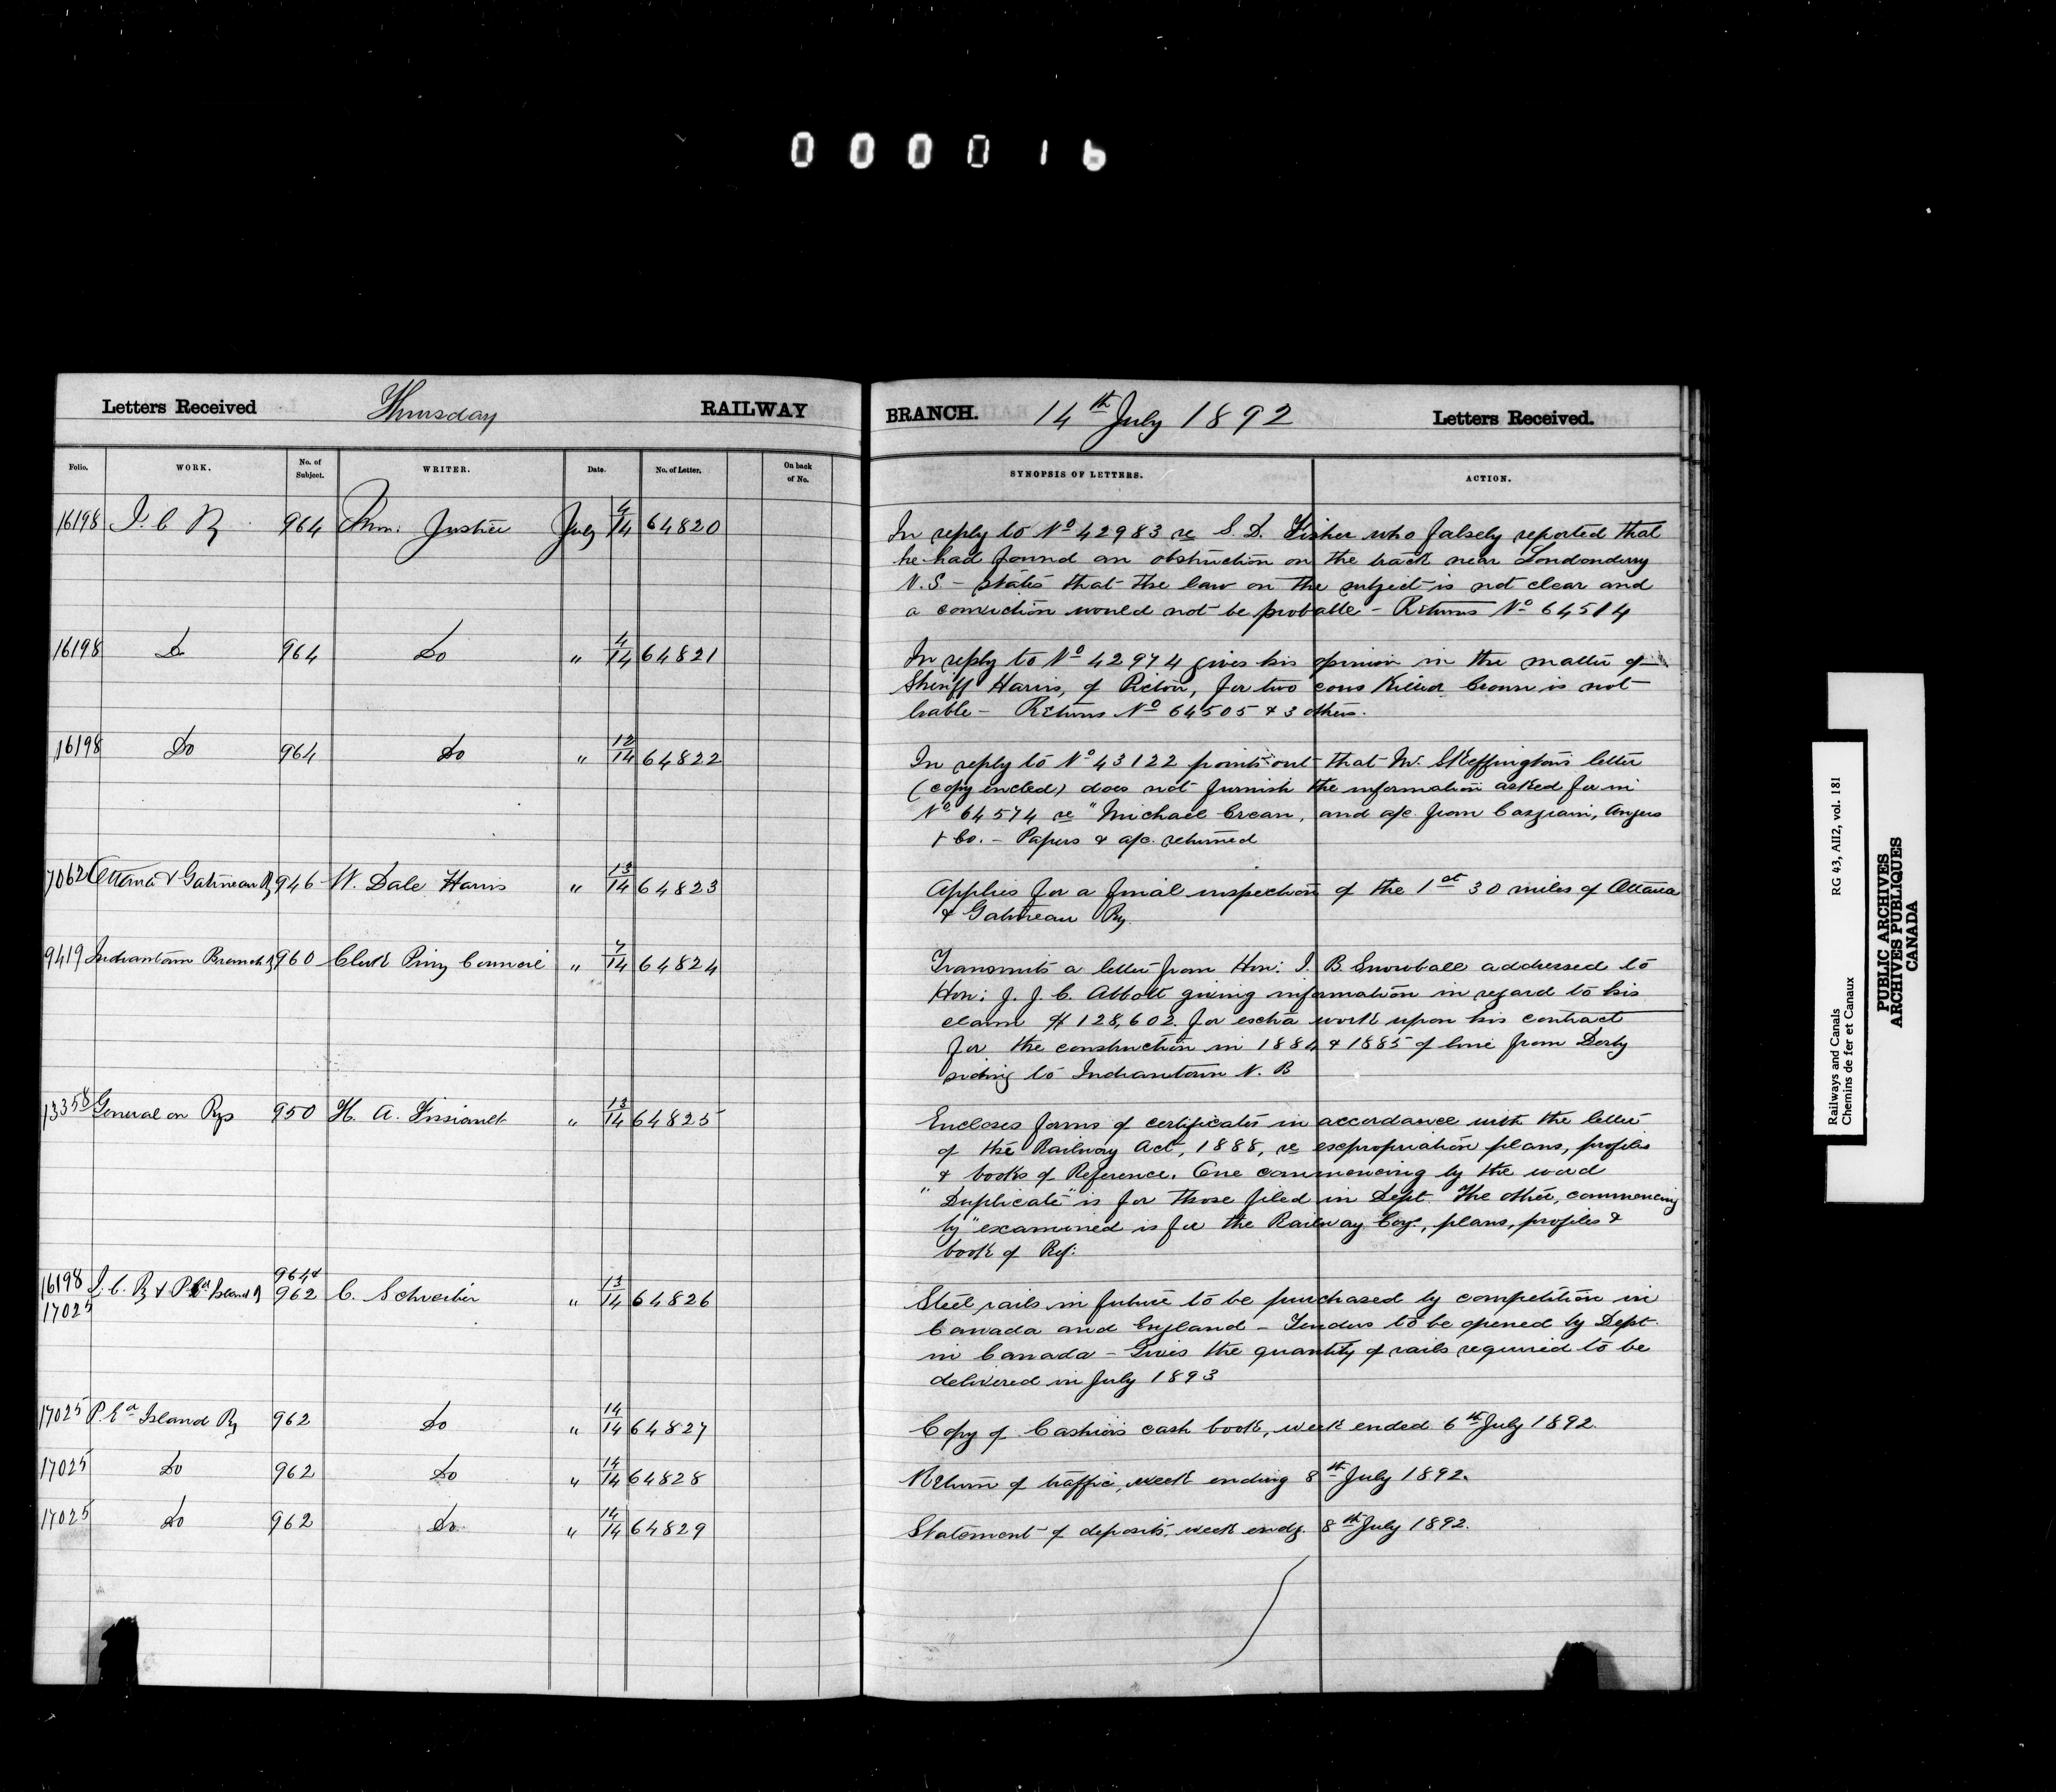 000016
Letters Received Thursday RAILWAY
Folio. WORK. No. of Subject. WRITER. Date. No. of Letter. On back of No.
16198 I. C. Ry 964 Min. Justice July 4/14 64820
16198 Do 964 Do " 4/14 64821
16198 Do 964 Do " 12/14 64822
7062 Ottawa & Gatineau Ry 946 W. Dale Harris " 13/14 64823
9419 Indiantown Branch Ry 960 Clerk Privy Council " 7/14 64824
13358 General on Rys 950 H. A. Fissiault " 13/14 64825
16198 17025 I. C. Ry & P. Ed Island Ry 964 & 962 C. Schreiber " 13/14 64826
17025 P. Ed Island Ry 962 Do " 14/14 64827
17025 Do 962 Do " 14/14 64828
17025 Do 962 Do " 14/14 64829
BRANCH. 14th July 1892 Letters Received.
SYNOPSIS OF LETTERS. ACTION.
In reply to No 42983 re S. D. Fisher who falsely reported that
he had found an obstruction on the track near Londonderry
N.S - states that the law on the subject is not clear and
a conviction would not be probable - Returns No 64514
In reply to No 42974 gives his opinion in the matter of
Sheriff Harris, of Pictou, for two cows killed Crown is not
liable - Returns No 64505 & 3 others.
In reply to No 43122 points out that Mr. Skeffington's letter
(copy encled) does not furnish the information asked for in
No 64574 re "Michael Crean, and a/c from Casgrain, Angers
& Co. - Papers & a/c. returned
Applies for a final inspection of the 1st 30 miles of Ottawa
& Gatineau Ry.
Transmits a letter from Hon: J. B. Snowball addressed to
Hon: J. J. C. Abbott giving information in regard to his
claim $128,602. for extra work upon his contract
for the construction in 1884 & 1885 of line from Derby
siding to Indiantown N. B
Encloses forms of certificates in accordance with the letter
of the Railway Act, 1888, re expropriation plans, profiles
& books of Reference. One commencing by the word
"Duplicate" is for those filed in Dept. The other, commencing
by "examined is for the Railway Coy., plans, profiles &
book of Ref:
Steel rails in future to be purchased by competition in
Canada and England - Tenders to be opened by Dept.
in Canada - Gives the quantity of rails required to be
delivered in July 1893
Copy of Cashiers cash book, week ended 6th July 1892.
Return of traffic, week ending 8th July 1892.
Statement of deposits, week endg. 8th July 1892.
Railways and Canals RG 43, AII2, vol. 181
Chemins de fer et Canaux
PUBLIC ARCHIVES
ARCHIVES PUBLIQUES
CANADA